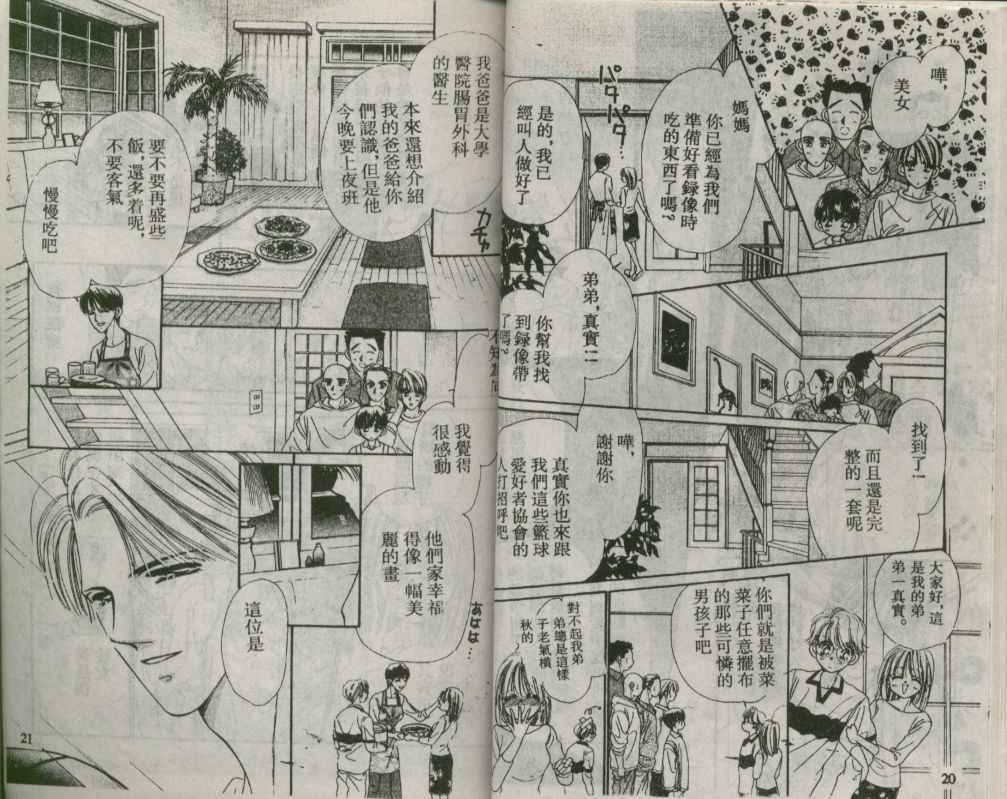 嘩，
美女
媽媽
你已經為我們
準備好看録像時
吃的東西了嗎？
是的，我已
經叫人做好了
パタ
パタ…
弟弟，真實！！
你幫我找
到録像帶
了嗎？
找到了！
而且還是完
整的一套呢
嘩，
謝謝你
真實你也來跟
我們這些籃球
愛好者協會的
人打招呼吧
大家好，這
是我的弟
弟—真實。
你們就是被菜
菜子任意擺布
的那些可憐的
男孩子吧
對不起我弟
弟總是這樣
子老氣橫
秋的
20
我爸爸是大學
醫院腸胃外科
的醫生
本來還想介紹
我的爸爸給你
們認識，但是他
今晚要上夜班
カチャ
要不要再盛些
飯，還多着呢，
不要客氣
慢慢吃吧
我覺得
很感動
他們家幸福
得像一幅美
麗的畫
あはは…
這位是
21